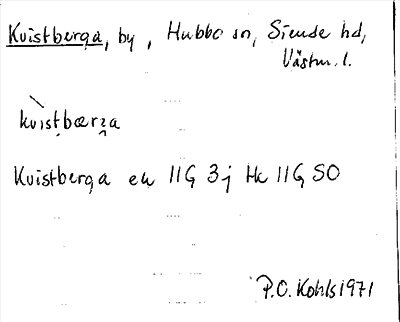 Kvistberga, by, Hubbo sn, Siende hd,
Västm. l.
kvistbærza
Kvistberga ek 11G 3j Hc 11G SO
P.O. Kohls 1971